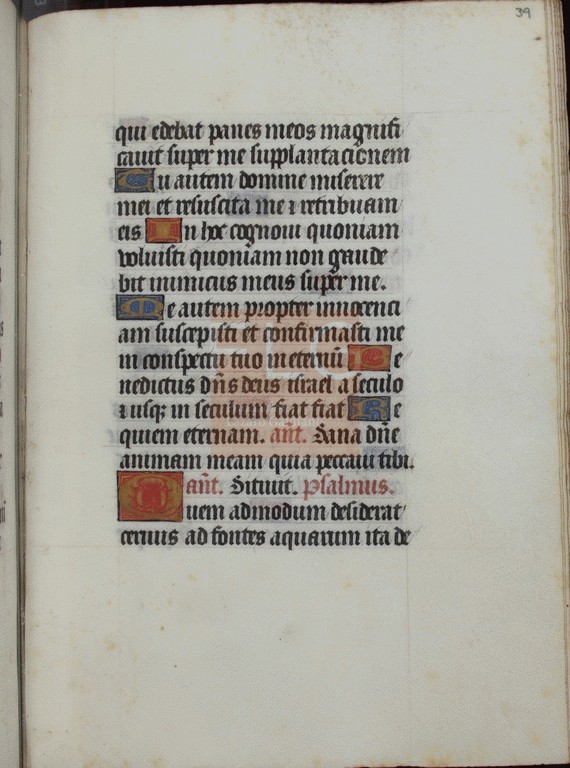 39
qui edebat panes meos magnifi
cauit super me supplantacionem
Tu autem domine miserere
mei et resuscita me ⁊ retribuam
eis In hoc cognoui quoniam
voluisti quoniam non gaude
bit inimicus meus super me.
Me autem propter innocenci
am suscepisti et confirmasti me
in conspectu tuo in eternū Be
nedictus dn̄s deus israel a seculo
⁊ usqꝫ in seculum fiat fiat Re
quiem eternam. ant. Sana dn̄e
animam meam quia peccaui tibi.
an̄t. Sitiuit. psalmus.
Quem admodum desiderat
ceruus ad fontes aquarum ita de